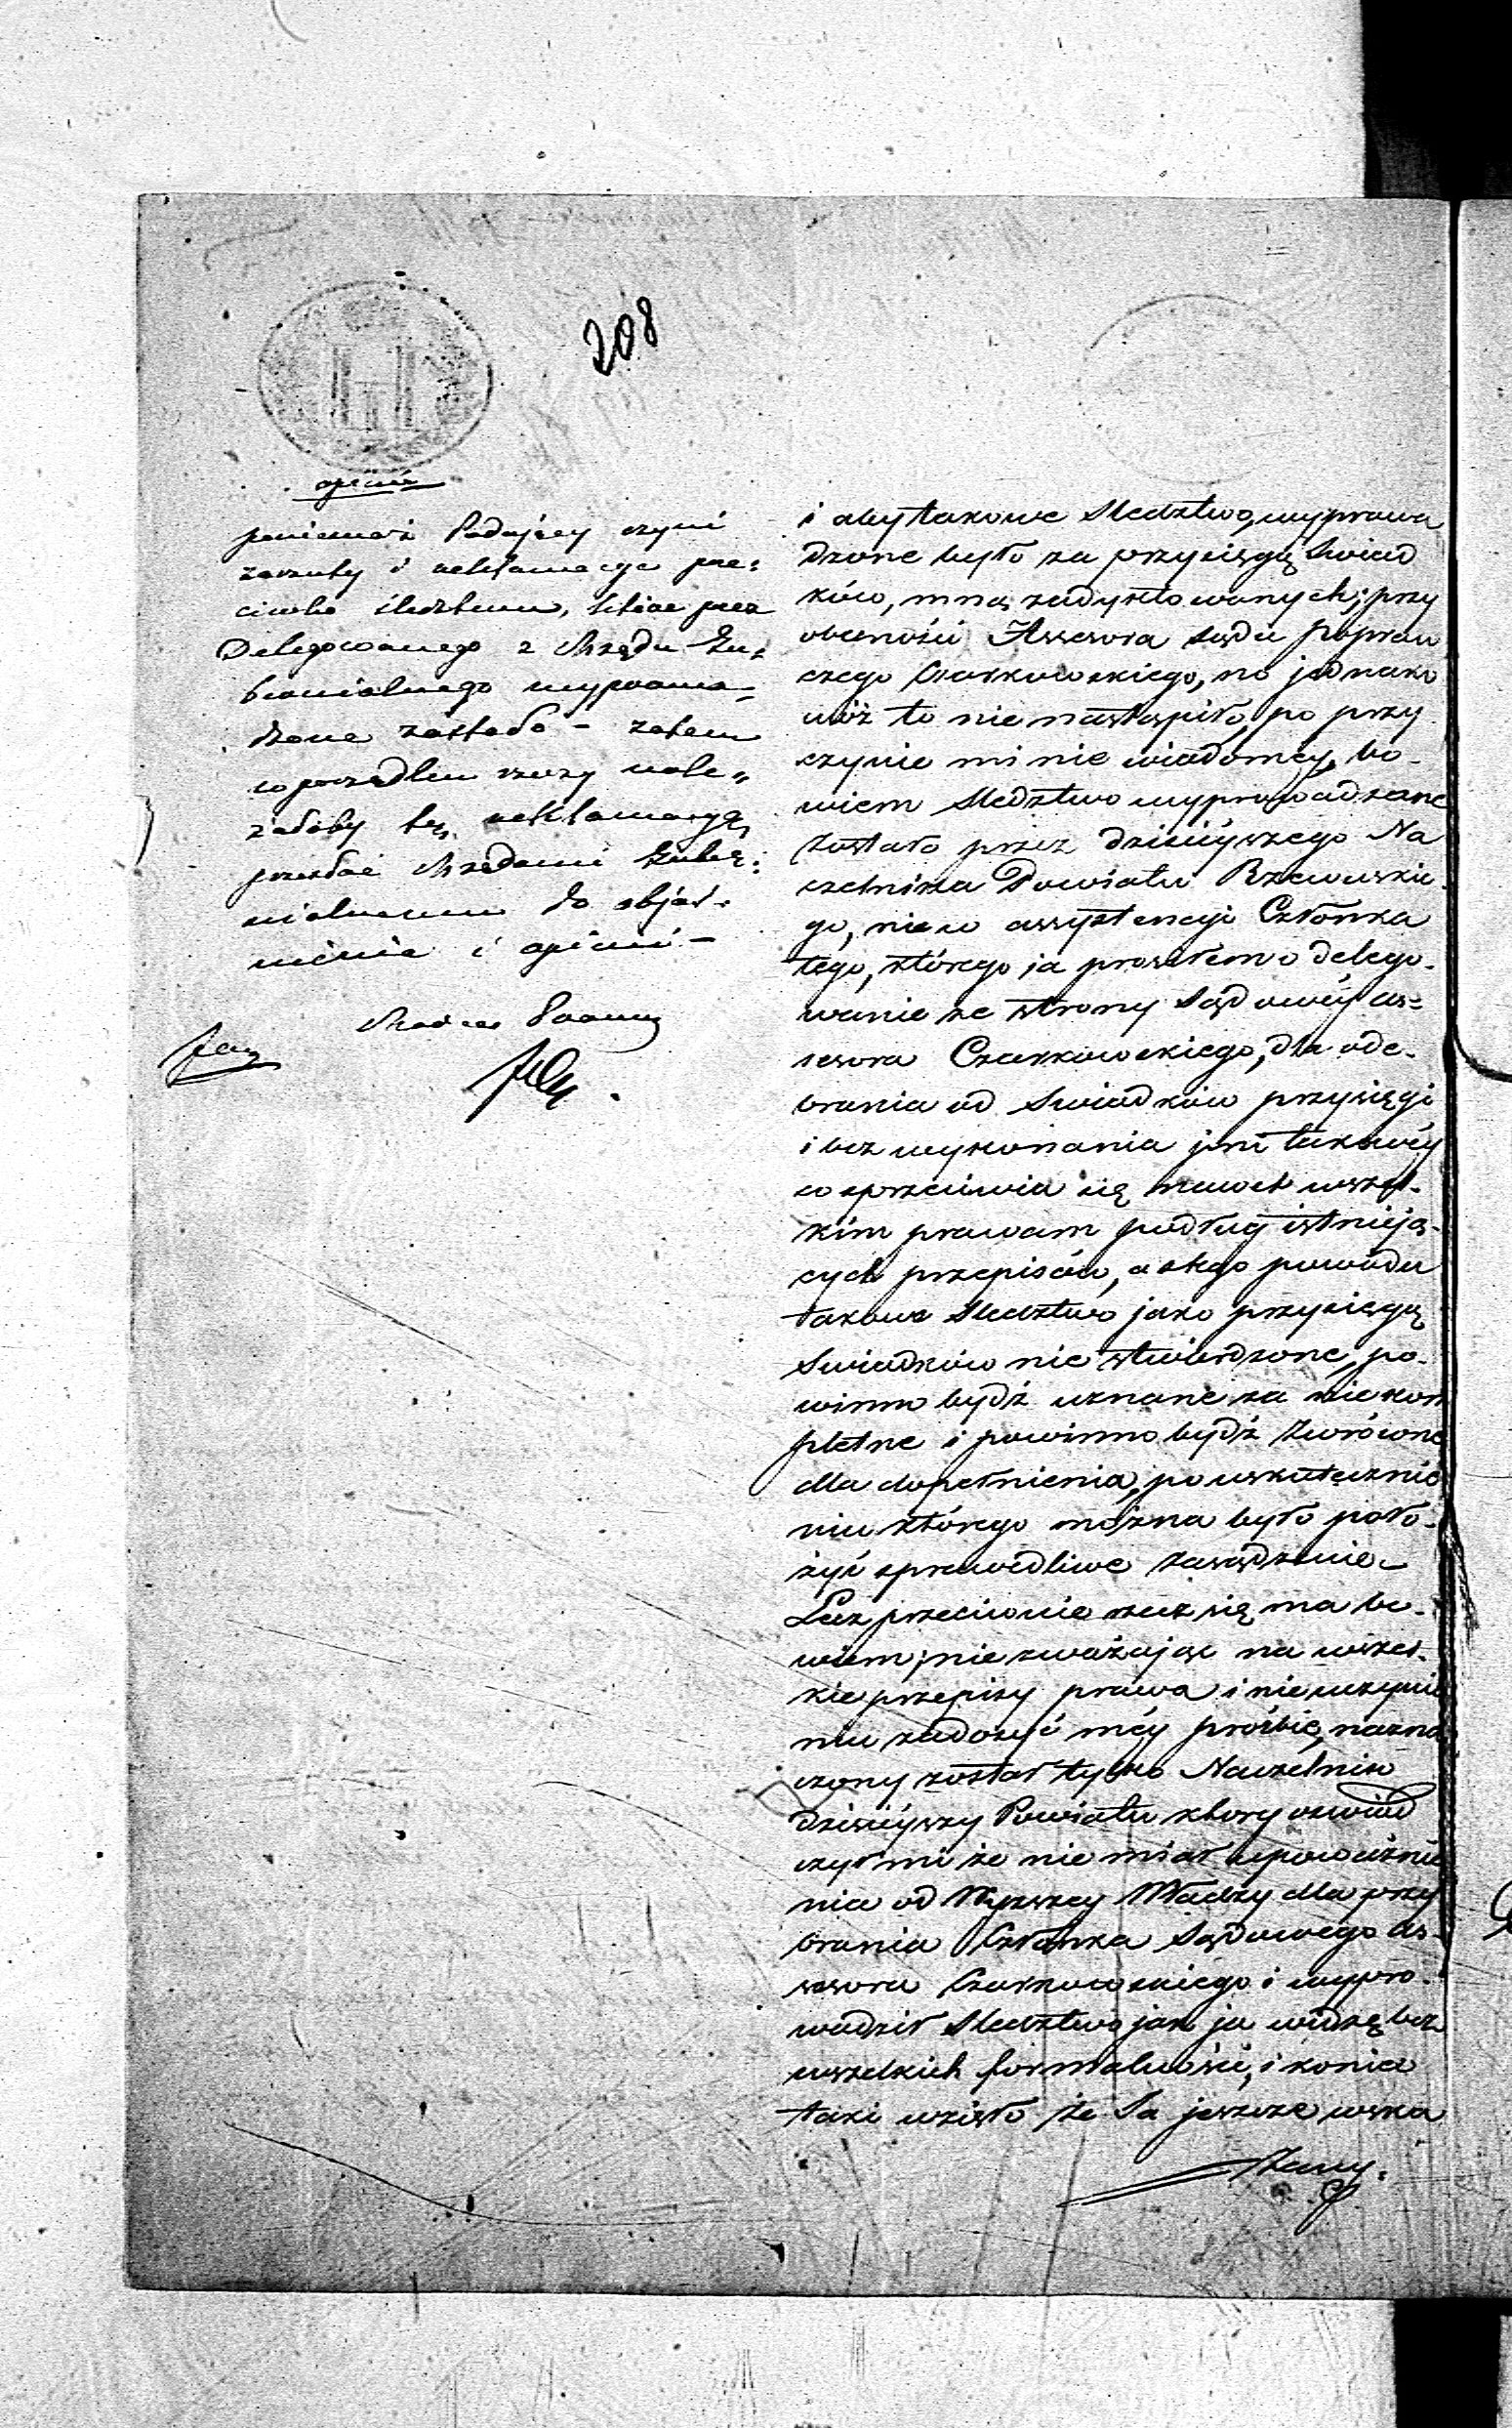 208
opinia
ponieważ Podający czyni
zarzuty i reklamacye prze:
ciwko śledztwu, które przez
Delegowanego z Urzędu Gu:
bernialnego wyprowa=
dzone zostało – zatem
w porządku rzeczy nale"
żałoby tę reklamacyą
przesłać Urzędowi Guber:
nialnemu do objaś:
nienia i opinii –
Radca Prawny
i aby takowe Sledztwo, wyprowa
dzone było za przysięgą Swiad
ków, mną zadyktowanych; przy
obecności Assesora Sądu Popraw
czego Czarkowskiego, no jednako
wóż to nie nastąpiło, po przy
czynie mi nie wiadomey, bo-
wiem Sledztwo wyprowadzane
zostało przez dzisieyszego Na
czelnika Powiatu Rzewuskie-
go, nie w assystencyi Członka
tego, którego ja prosiłem o delego-
wanie ze strony Sądowéy as=
sesora Czarkowskiego, dla ode-
brania od Swiadków przysięgi
i bez wykonania takowéy
co sprzeciwia się wszel-
kim prawam podług istnieją-
cych przepisów, a z tego powodu
takowe Sledztwo jako przysięgą
Swiadków nie stwierdzone, po-
winno bydź uznane za nie kom
pletne i powinno bydź zwrócone
dla dopełnienia, po uskutecznie
niu którego można było poło-
żyć sprawedliwe zasądzenie
Lecz przeciwnie rzecz się ma bo-
wiem; nie zważając na wszel-
kie przepisy prawa i nie uczynie
niu zadosyć méy prośbie, nazna
czony został tylko Naczelnik
dzisieyszy Powiatu ktory oswiad
czył mi że nie miał upoważnie
nia od Wyzszey Władzy dla przy
brania Członka Sądowego as-
sesora Czarkowskiego i wypro-
wadził Sledztwo jak ja widzę bez
wszelkich formalności, i konia
taki wzięto że Ja jeszcze wska
zany.